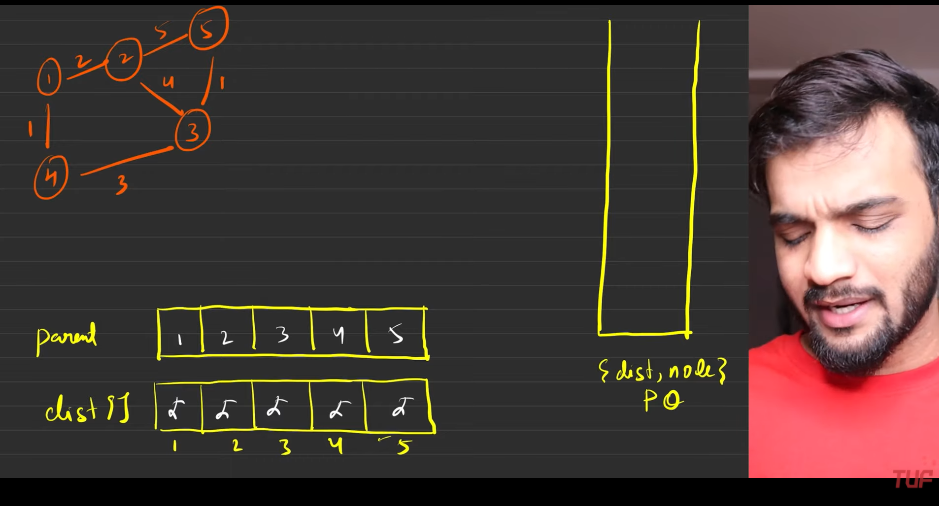 5
5
2
2
1
4
1
1
3
4
3
parent
1 2 3 4 5
dist []
1 2 3 4 5
{dist, node}
PQ
TUF